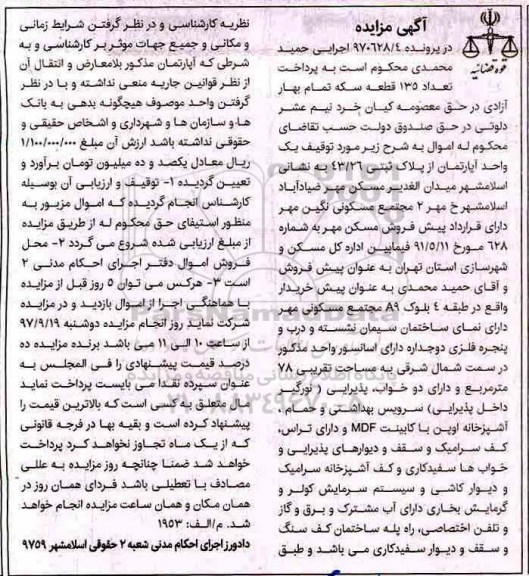 آگهی مزایده
قوه قضائیه
در پرونده ۹۷۰۶۲۸/۴ اجرایی حمید
محمدی محکوم است به پرداخت
تعداد ۱۳۵ قطعه سکه تمام بهار
آزادی در حق معصومه کیان خرد نیم عشر
دلوتی در حق صندوق دولت حسب تقاضای
محکوم له اموال به شرح زیر مورد توقیف یک
واحد آپارتمان از پلاک ثبتی ۴۳/۲۶ به نشانی
اسلامشهر میدان الغدیر مسکن مهر ضیادآباد
اسلامشهر خ مهر ۲ مجتمع مسکونی نگین مهر
دارای قرارداد پیش فروش مسکن مهر به شماره
۶۲۸ مورخ ۹۱/۵/۱۱ فیمابین اداره کل مسکن و
شهرسازی استان تهران به عنوان پیش فروش
و آقای حمید محمدی به عنوان پیش خریدار
واقع در طبقه ۴ بلوک A۹ مجتمع مسکونی مهر
دارای نمای ساختمان سیمان نشسته و درب و
پنجره فلزی دوجداره دارای اسانسور واحد مذکور
در سمت شمال شرقی به مساحت تقریبی ۷۸
مترمربع و دارای دو خواب، پذیرایی ( نورگیر
داخل پذیرایی) سرویس بهداشتی و حمام .
آشپزخانه اوپن با کابینت MDF و دارای تراس،
کف سرامیک و سقف و دیوارهای پذیرایی و
خواب ها سفیدکاری و کف آشپزخانه سرامیک
و دیوار کاشی و سیستم سرمایش کولر و
گرمایش بخاری دارای آب مشترک و برق و گاز
و تلفن اختصاصی، راه پله ساختمان کف سنگ
و سقف و دیوار سفیدکاری می باشد و طبق
نظریه کارشناسی و در نظر گرفتن شرایط زمانی
و مکانی و جمیع جهات موثر بر کارشناسی و به
شرطی که آپارتمان مذکور بلامعارض و انتقال آن
از نظر قوانین جاریه منعی نداشته و با در نظر
گرفتن واحد موصوف هیچگونه بدهی به بانک
ها و سازمان ها و شهرداری و اشخاص حقیقی و
حقوقی نداشته باشد ارزش آن مبلغ ۱/۱۰۰/۰۰۰/۰۰۰
ریال معادل یکصد و ده میلیون تومان برآورد و
تعیین گردیده ۱- توقیف و ارزیابی آن بوسیله
کارشناس انجام گردیده که اموال مزبور به
منظور استیفای حق محکوم له از طریق مزایده
از مبلغ ارزیابی شده شروع می گردد ۲- محل
فروش اموال دفتر اجرای احکام مدنی ۲
است ۳- هرکس می توان ۵ روز قبل از مزایده
با هماهنگی اجرا از اموال بازدید و در مزایده
شرکت نماید روز انجام مزایده دوشنبه ۹۷/۹/۱۹
از ساعت ۱۰ الی ۱۱ می باشد برنده مزایده ده
درصد قیمت پیشنهادی را فی المجلس به
عنوان سپرده نقدا می بایست پرداخت نماید
مال متعلق به کسی است که بالاترین قیمت را
پیشنهاد کرده است و بقیه بها در فرجه قانونی
که از یک ماه تجاوز نخواهد کرد پرداخت
خواهد شد ضمنا چنانچه روز مزایده به عللی
مصادف با تعطیلی باشد فردای همان روز در
همان مکان و همان ساعت مزایده انجام خواهد
شد. م/الف: ۱۹۵۳
دادورز اجرای احکام مدنی شعبه ۲ حقوقی اسلامشهر ۹۷۵۹